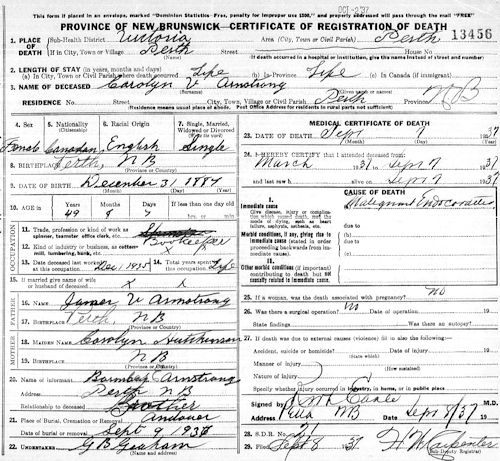 OCT -2 '37
This form if placed in an envelope, marked "Dominion Statistics - Free, penalty for improper use $300," and properly addressed will pass through the mail "FREE"
PROVINCE OF NEW BRUNSWICK—CERTIFICATE OF REGISTRATION OF DEATH
13456
1. PLACE OF DEATH
Sub-Health District Victoria Area (City, Town or Civil Parish) Perth
If in City, Town or Village Perth Street House No
If death occurred in a hospital or institution, give its name instead of street and number
2. LENGTH OF STAY (in years, months and days)
(a) In City, Town or Civil Parish where death occurred Life (b) In Province Life (c) In Canada (if immigrant)
3. NAME OF DECEASED Carolyn V Armstrong
(Surname) (Given name or names)
RESIDENCE No. Street City, Town, Village or Civil Parish Perth Province NB
(Residence means usual place of abode. Post Office Address for residents in rural parts not sufficient)
4. Sex
Female
5. Nationality (Citizenship)
Canadian
6. Racial Origin
English
7. Single, Married, Widowed or Divorced (Write the word)
Single
8. BIRTHPLACE Perth, NB
(Province or Country)
9. DATE OF BIRTH December 31, 1887
(Month) (Day) (Year)
10. AGE in Years Months Days If less than one day old
49 8 7 hrs. or min.
OCCUPATION
11. Trade, profession or kind of work as spinner, teamster, office clerk, etc.
Bookeeper
12. Kind of industry or business, as cotton-mill, lumbering, bank, etc.
13. Date deceased last worked at this occupation Dec 1935
14. Total years spent in this occupation Life
15. If married give name of wife or husband of deceased X X
FATHER
16. NAME James V Armstrong
17. BIRTHPLACE Perth, NB
(Province or Country)
MOTHER
18. MAIDEN NAME Carolyn Hutchinson
19. BIRTHPLACE NB
(Province or Country)
20. Name of informant Armstrong
Address Perth NB
Relationship to deceased Brother
21. Place of Burial, Cremation or Removal Andover
Date of burial or removal Sept 9 1937
22. UNDERTAKER GB
MEDICAL CERTIFICATE OF DEATH
23. DATE OF DEATH Sept 7 1937
(Month) (Day) (Year)
24. I HEREBY CERTIFY that I attended deceased from:
March 1937 to Sept 7 1937
and last saw h alive on Sept 7 1937
CAUSE OF DEATH
I
Immediate cause
Give disease, injury or complication which caused death, not the mode of dying, such as heart failure, asphyxia, asthenia, etc.
(a) Malignant Endocarditis
due to
Morbid conditions, if any, giving rise to immediate cause (stated in order proceeding backwards from immediate cause).
(b)
due to
(c)
II
Other morbid conditions (if important) contributing to death but not causally related to immediate cause.
25. If a woman, was the death associated with pregnancy? no
26. Was there a surgical operation? no Date of operation 19
State findings Was there an autopsy?
27. If death was due to external causes (violence) fill in also the following:
Accident, suicide or homicide? Date of injury 19
(State which)
Manner of injury
Nature of injury
Specify whether injury occurred in industry, in home, or in public place
Signed by M.D.
Address NB Date Sept 8/37
28. S.D.R. No. 21
29. Filed Sept 8 1937 H W Carpenter
(Sub-Deputy Registrar)